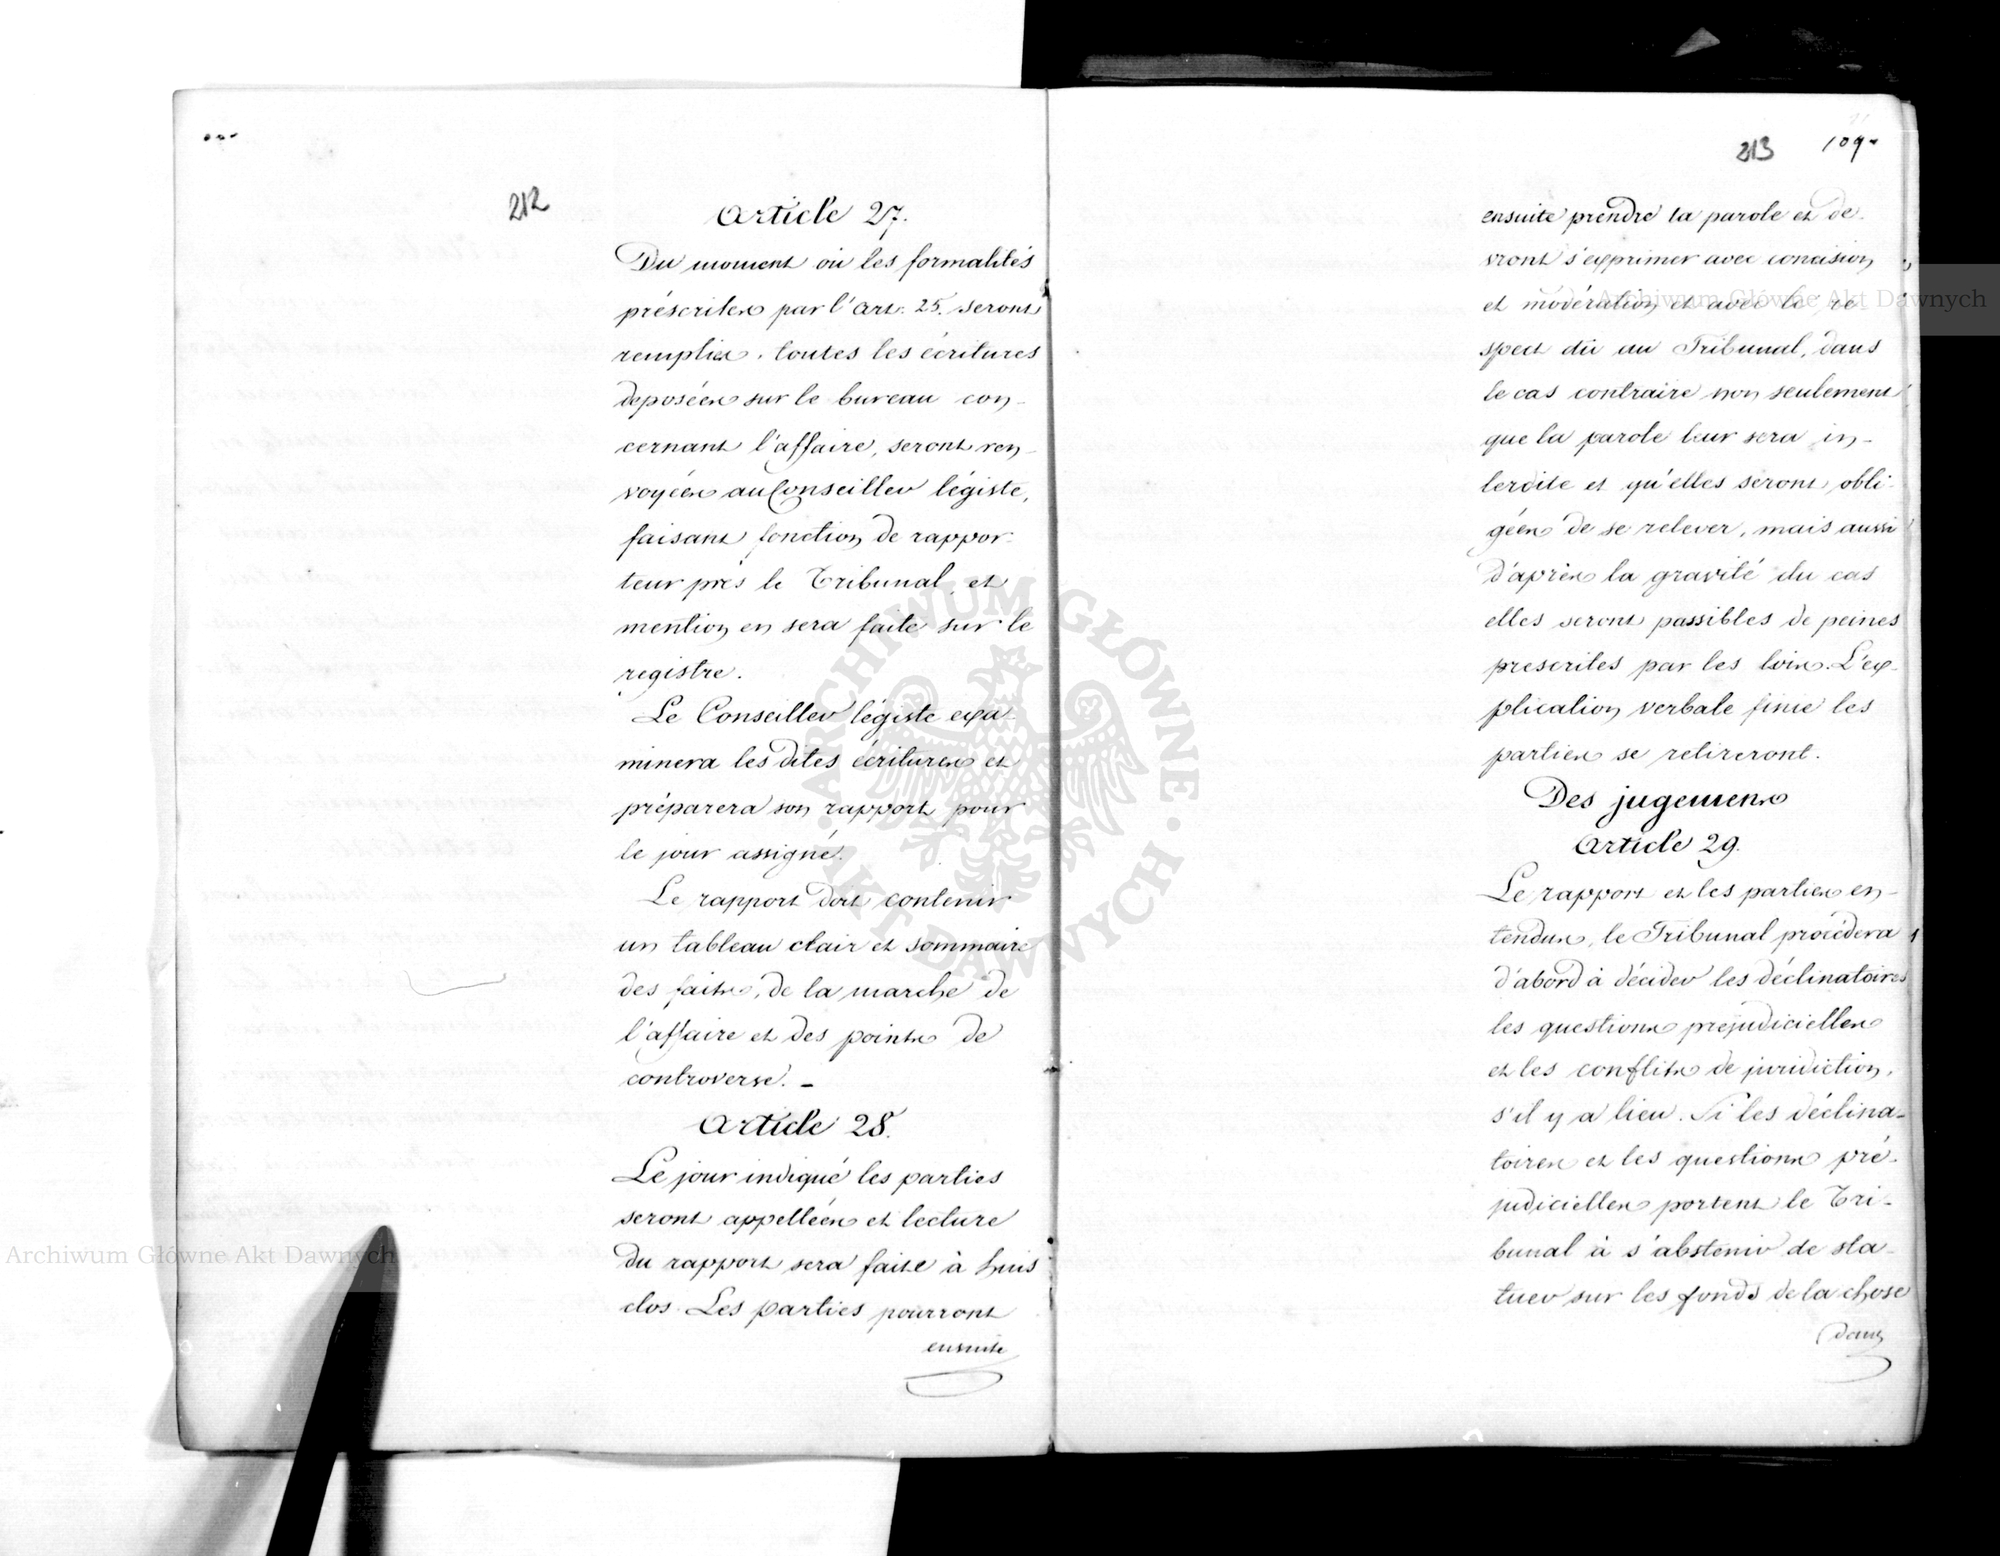 212
Article 27.
Du moment où les formalités
préscrites par l'Art. 25. seront
remplies, toutes les écritures
deposées sur le bureau con-
cernant l'affaire, seront ren-
voyées au Conseiller légiste,
faisant fonction de rappor-
teur près le Tribunal, et
mention en sera faite sur le
registre.
Le Conseiller légiste exa-
minera les dites écritures et
préparera son rapport pour
le jour assigné.
Le rapport doit contenir
un tableau clair et sommaire
des faits, de la marche de
l'affaire et des points de
controverse. -
Article 28.
Le jour indiqué les parties
seront appellées et lecture
du rapport sera faite à huis
clos. Les parties pourront
ensuite
213 109
ensuite prendre la parole et de-
vront s'exprimer avec concision
et modération et avec le re-
spect dû au Tribunal, dans
le cas contraire non seulement
que la parole leur sera in-
terdite et qu'elles seront obli-
gées de se relever, mais aussi
d'après la gravité du cas
elles seront passibles de peines
prescrites par les loix. L'ex-
plication verbale finie les
parties se retireront.
Des jugemens
Article 29.
Le rapport et les parties en-
tendus, le Tribunal procédera
d'abord à décider les déclinatoires
les questions prejudicielles
et les conflits de juridiction,
s'il y a lieu. Si les déclina-
toires et les questions pré-
judicielles portent le Tri-
bunal à s'abstenir de sta-
tuer sur les fonds de la chose
dans
Archiwum Główne Akt Dawnych
Archiwum Główne Akt Dawnych
ARCHIWUM GŁÓWNE · AKT DAWNYCH ·